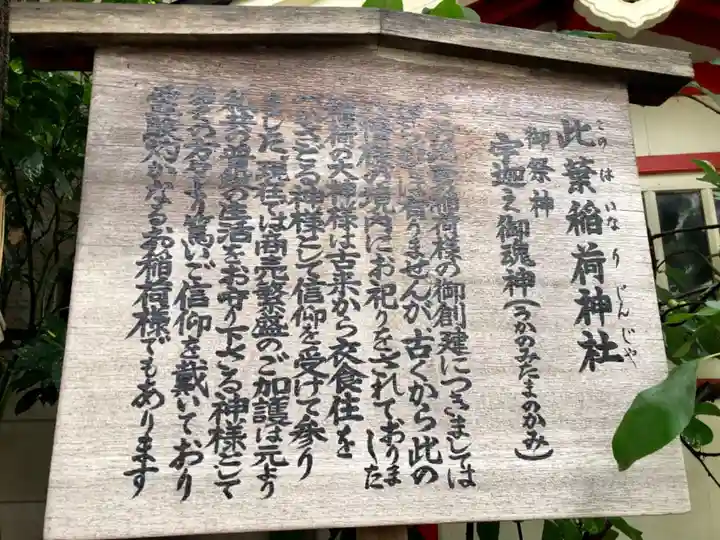 此葉稲荷神社
このはいなりじんじゃ
御祭神
宇迦之御魂神(うかのみたまのかみ)
稲荷様の御創建につきましては
ませんが、古くから此の
の境内にお祀りをされておりました
稲荷の大神様は古来から衣食住を
つかさどる神様として信仰を受けて参り
ました、現在では商売繁盛のご加護は元より
の生活をお守り下さる神様として
多くの方々より篤いご信仰を戴いており
霊験灼かなるお稲荷様でもあります